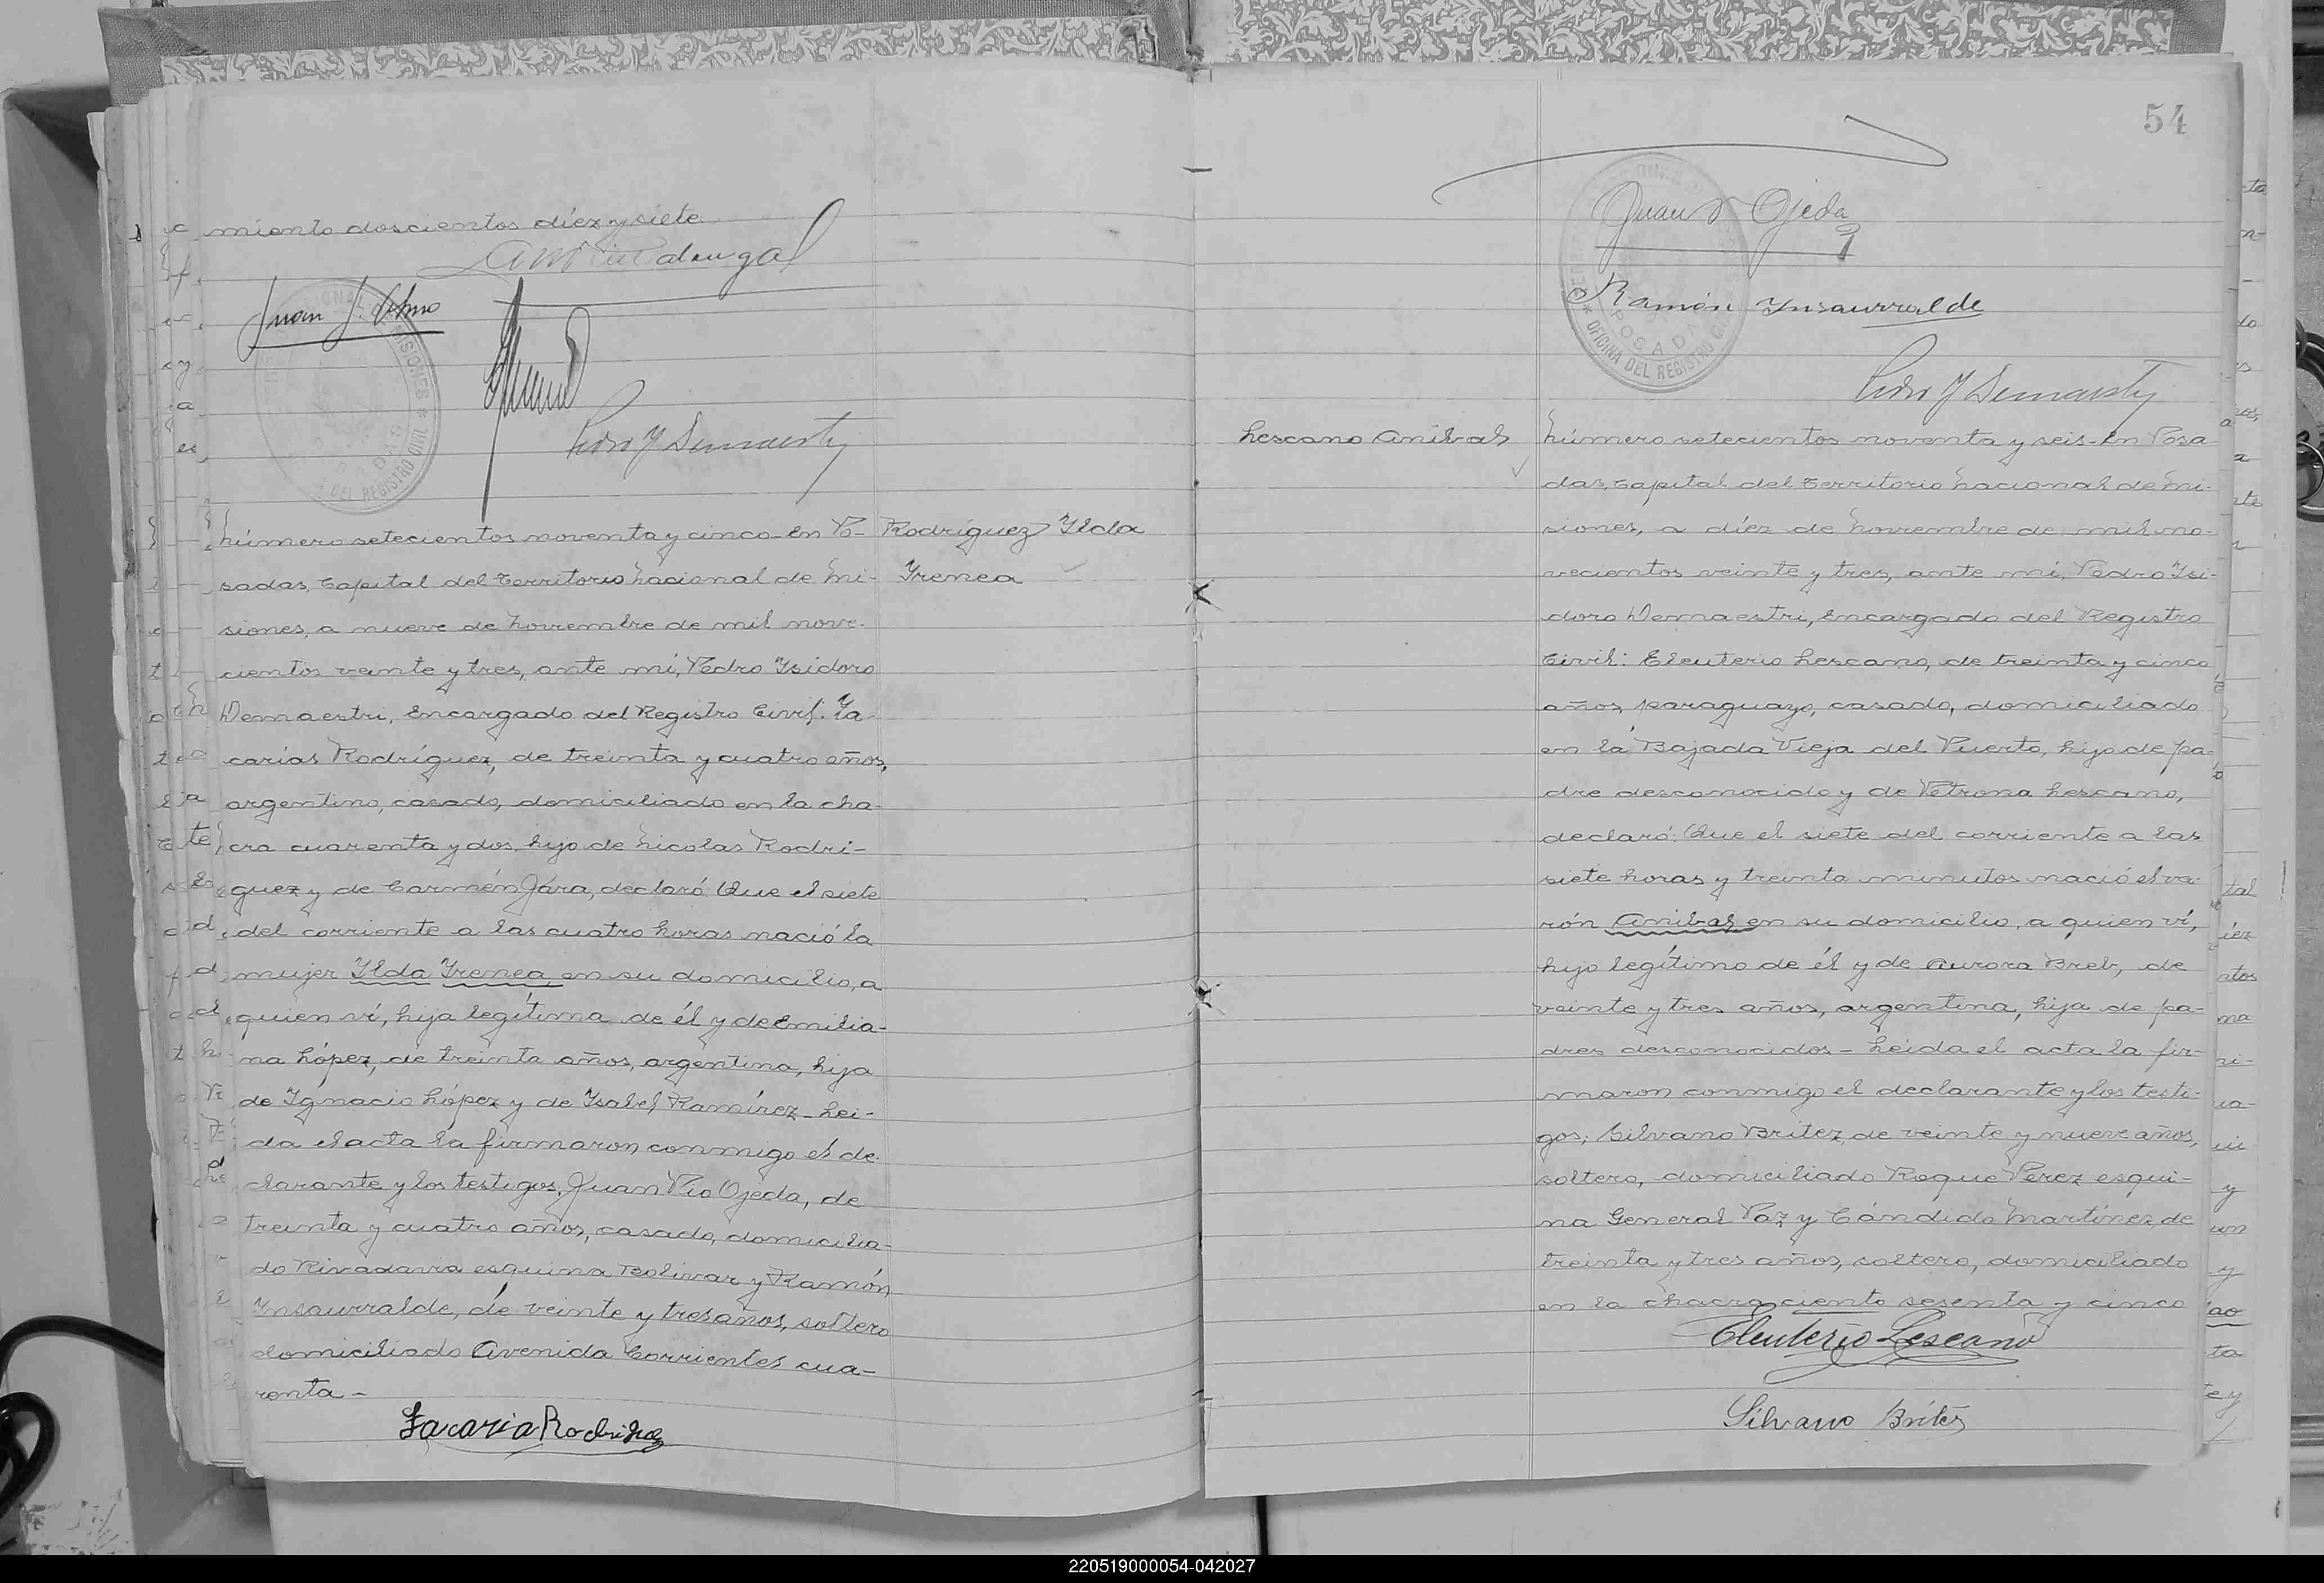 miento doscientos diez y siete
Pedro I Demaestri
Número setecientos noventa y cinco - En Po-
sadas, Capital del Territorio Nacional de Mi-
siones, a nueve de Noviembre de mil nove-
cientos veinte y tres, ante mí, Pedro Isidoro
Demaestri, Encargado del Registro Civil: Za-
carías Rodríguez, de treinta y cuatro años,
argentino, casado, domiciliado en la cha-
cra cuarenta y dos, hijo de Nicolas Rodrí-
guez y de Carmén Jara, declaró: Que el siete
del corriente a las cuatro horas nació la
mujer Ilda Irenea en su domicilio, a
quien ví, hija legítima de él y de Emilia-
na López, de treinta años, argentina, hija
de Ignacio López y de Isabel Ramírez - Leí-
da el acta la firmaron conmigo el de-
clarante y los testigos, Juan Pío Ojeda, de
treinta y cuatro años, casado, domicilia-
do Rivadavia esquina Bolivar y Ramón
Insaurralde, de veinte y tres años, soltero
domiciliado Avenida Corrientes cua-
renta -
Zacaria Rodriguez
Rodríguez Ilda
Irenea
54
Juan P Ojeda
Ramón Insaurralde
OFICINA DEL REGISTRO CIVIL
POSADAS
Pedro I Demaestri
Lescano Anibal
Número setecientos noventa y seis - En Posa-
das, Capital del Territorio Nacional de Mi-
siones, a diez de Noviembre de mil no-
vecientos veinte y tres, ante mí, Pedro Isi-
doro Demaestri, Encargado del Registro
Civil: Eleuterio Lescano, de treinta y cinco
años, paraguayo, casado, domiciliado
en la Bajada Vieja del Puerto, hijo de pa-
dre desconocido y de Petrona Lescano,
declaró: Que el siete del corriente a las
siete horas y treinta minutos nació el va-
rón Anibal en su domicilio, a quien ví,
hijo legítimo de él y de Aurora Breb, de
veinte y tres años, argentina, hija de pa-
dres desconocidos - Leída el acta la fir-
maron conmigo el declarante y los testi-
gos; Silvano Brítez, de veinte y nueve años,
soltero, domiciliado Roque Perez esqui-
na General Paz y Cándido Martínez, de
treinta y tres años, soltero, domiciliado
en la chacra ciento sesenta y cinco
Eleuterio Lescano
Silvano Britez
220519000054-042027